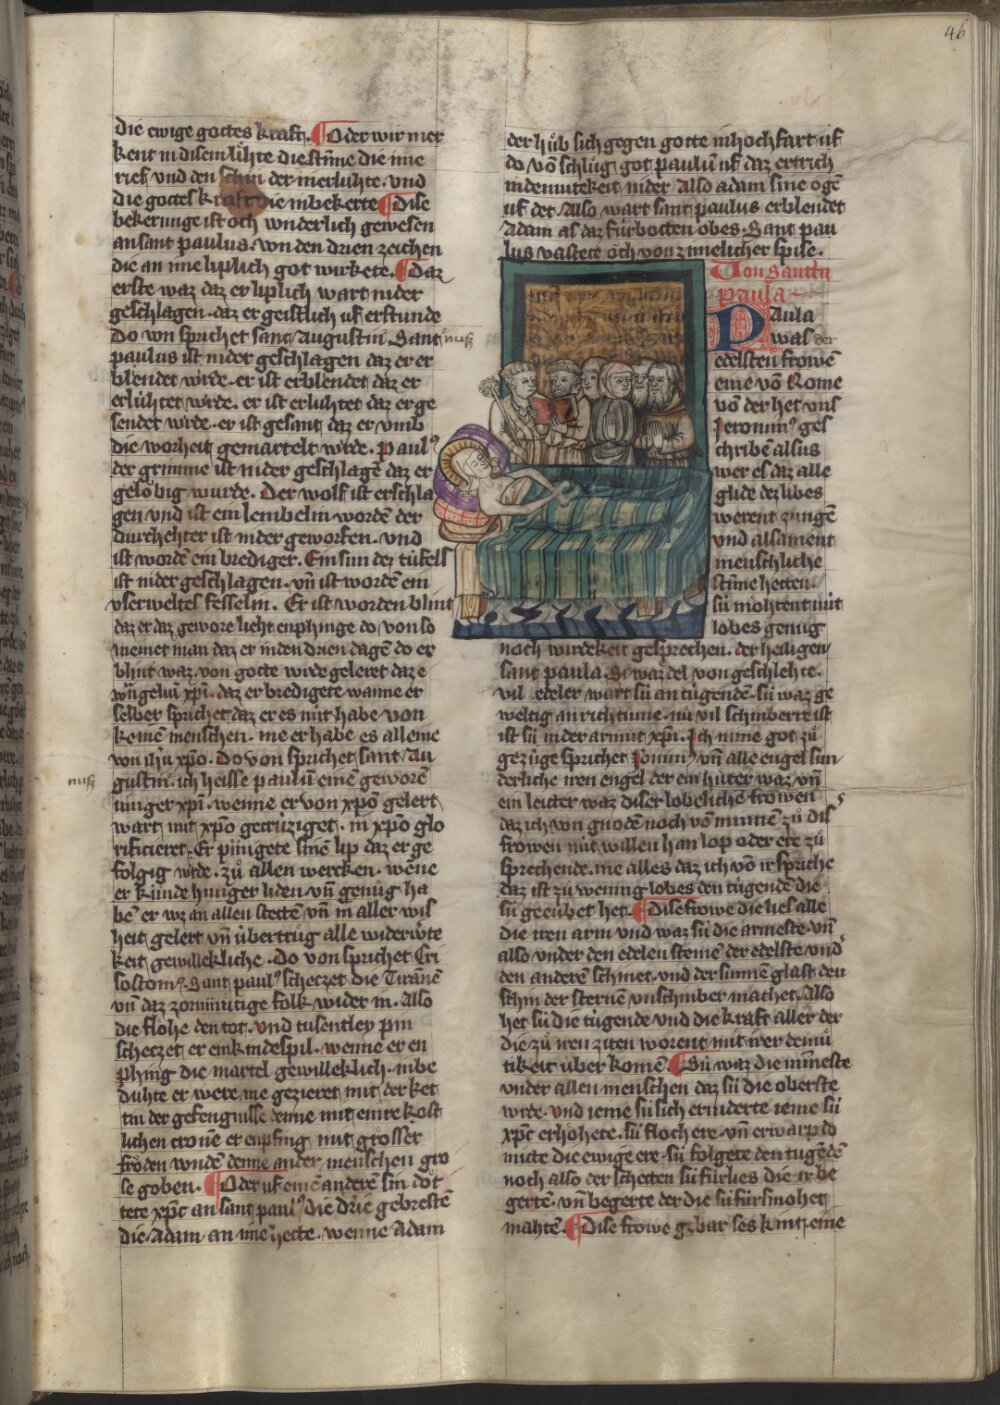 46
die ewige gottes kraft. Oder wir mer
kent in disem lúhte die stīme die me
rief vnd den schin der in erluhte. vnd
die gottes kraft die in bekerte. Dise
bekerunge ist och wnderlich gewesen
an sant paulus. von den drien zeichen
die an ime liplich got wirkete. Daz
erste waz daz er liplich wart nider
geschlagen. daz er geistlich uf erstunde
Do von sprichet sant Augustin. Sant
paulus ist nider geschlagen daz er er
blendet wirde. er ist erblendet daz er
erlúhtet wirde. er ist erluhtet daz er ge
sendet wirde. er ist gesant daz er vmb
die worheit gemartelt wirde. paulꝰ
der grimme ist nider geschlagē daz er
gelŏbig wurde. Der wolf ist erschla
gen vnd ist ein lembelin wordē der
durchehter ist nider geworfen. vnd
ist wordē ein brediger. Ein sun der túfels
ist nider geschlagen. vn̄ ist wordē ein
vserweltes fesselin. Er ist worden blint
daz er daz gewore lieht enphinge do von so
meinet man daz er in den drien dagē do er
blint waz. von gotte wirde geleret daz e
wngeliū xp̄i. daz er bredigete wanne er
selber sprichet daz er es nút habe von
keinē menschen. me er habe es alleine
von ih̄u xp̄o. Do von sprichet sant Au
gustin. ich heisse paulū einē geworē
iunger xp̄i. wenne er von xp̄o gelert
wart mit xp̄o gecrúziget. in xp̄o glo
rificieret. Er pinigete sinē lip daz er ge
folgig wirde. zů allen wercken. wēne
er kunde hunger liden vn̄ genůg ha
bē er wz an allen stettē vn̄ in aller wis
heit gelert vn̄ úbertrůg alle widerwte
keit gewilleklichē. Do von sprichet Cri
sostomꝰ. Sant paulꝰ scheczet die Tirānē
vn̄ daz zornmútige folk wider in. Also
die flŏhe den tot. vnd tusentley pin
scheczet er ein kindespil. wenne er en
phing die martel gewilleklich. in be
duhte er were me gezieret mit der ket
tin der gefengnisse denne mit einre kost
lichen cronē er enpfing mit grosser
frŏden wndē denne ander menschen gro
se goben. Oder uf einē anderē sin dŏt
tete xp̄c an sant paulꝰ die drie gebrestē
die Adam an ime hette. wenne Adam
nuß
nuß
der hůb sich gegen gotte in hochfart uf
do vō schlůg got paulū uf daz ertrich
in demutekeit nider. Also adam sine ŏgē
uf det. Also wart sant paulus erblendet
Adam as daz fúrbotten obes. Sant pau
lus vastete och von zimelicher spise.
Von sancta
paula
Paula
was der
edelsten frowē
eine vō Rome
vō der het vns
Jeronimꝰ ges
chribē alsus
wer es daz alle
glide dez libes
werent zungē
vnd alsament
menschliche
stīme hetten.
sú mŏhtent nút
lobes genůg
noch wirdekeit gesprechen. der heiligen
sant paula. Sú waz del von geschlehte.
vil edeler wart sú an túgendē. sú waz ge
weltig an richtūme. nu vil schinberre ist
ist sú in der armůt xp̄i. Ich nime got zů
gezúge sprichet Jeronimꝰ vn̄ alle engel sun
derliche iren engel der ein hůter waz vn̄
ein leitter waz diser lobelichē frowen
daz ich von gnodē noch vō minnen zů dis
frowen nút willen han lop oder ere zů
sprechende. me alles daz ich vō ir spriche
daz ist zů wening lobes den túgende die
sú geeubet het. Dise frowe die lies alle
die iren arm vnd waz sú die armeste. vn̄
also vnder den edelen steinē der edelste vnd
den anderē schinet vnd der sunnē glast den
schin der sternē vnschinber machet. Also
het sú die túgende vnd die kraft aller der
die zů iren ziten worent mit irer demů
tikeit úber komē. Sú waz die mīneste
vnder allen menschen daz sú die oberste
wrde. vnd ieme sú sich erniderte ieme sú
xp̄c erhŏhete. sú floch ere. vn̄ erwarp do
mitte die ewige ere. sú folgete den tugēdē
noch also der schetten sú fúrlies die ir be
gertē. vn̄ begerte der die sú fúrsmohet
mahtē. Dise frowe gebar ses kint. eine